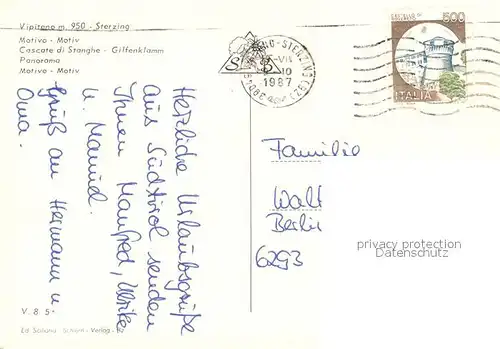 Vipiteno m. 950 - Sterzing
Motivo - Motiv
Cascate di Stanghe - Gilfenklamm
Panorama
Motivo - Motiv
Herzliche Urlaubsgrüße
aus Südtirol senden
Ihnen Manfred, Ulrike
u. Manuel.
Gruß an Hermann u
Oma.
V. 8 5
Verlag - Bz
-STERZING (BZ)
1987
500
ITALIA
Familie
Walt
Berlin
6293
privacy protection
Datenschutz